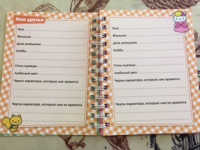 Мои друзья
Имя
Фамилия
Дата рождения
Хобби
Стиль одежды
Любимый цвет
Черты характера, которые мне нравятся
Черты характера, которые мне не нравятся
Имя
Фамилия
Дата рождения
Хобби
Стиль одежды
Любимый цвет
Черты характера, которые мне нравятся
Черты характера, которые мне не нравятся